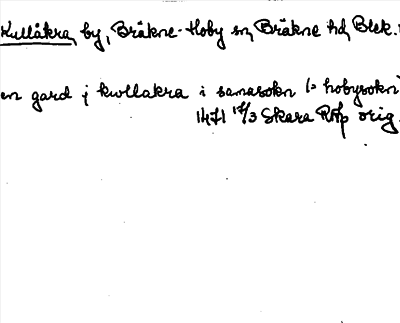 Kullåkra, by, Bräkne-Hoby sn, Bräkne hd, Blek.
en gard j kwllakra i samasokn (= hobysokn)
1471 17/3 Skara RAp orig.